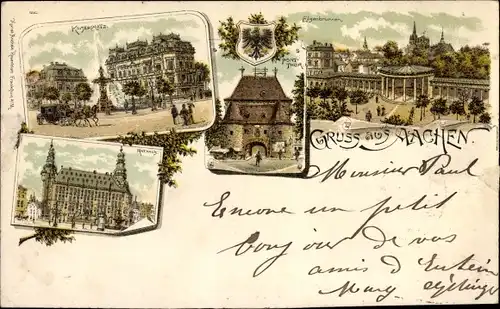 Kaiserplatz.
Elisenbrunnen
Pont
Thor
Rathaus
GRUSS aus AACHEN.
Monsieur Paul
Encore un petit
bonjour de vos
amis d'
Mary